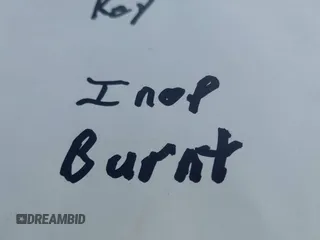 Key
Inop
Burnt
DREAMBID